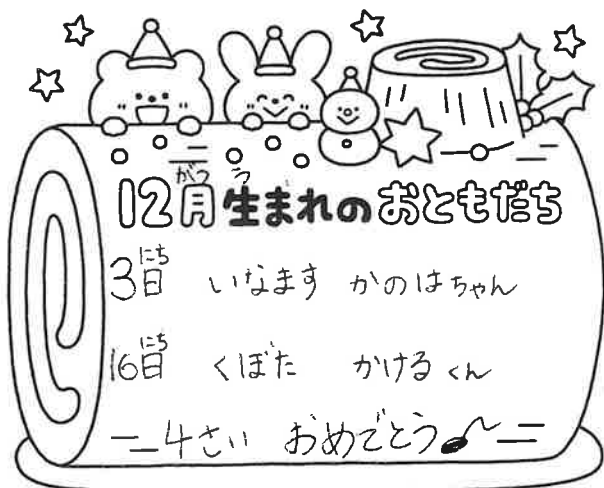 12月生まれのおともだち
3日 いなます かのはちゃん
16日 くぼた かけるくん
4さい おめでとう♪